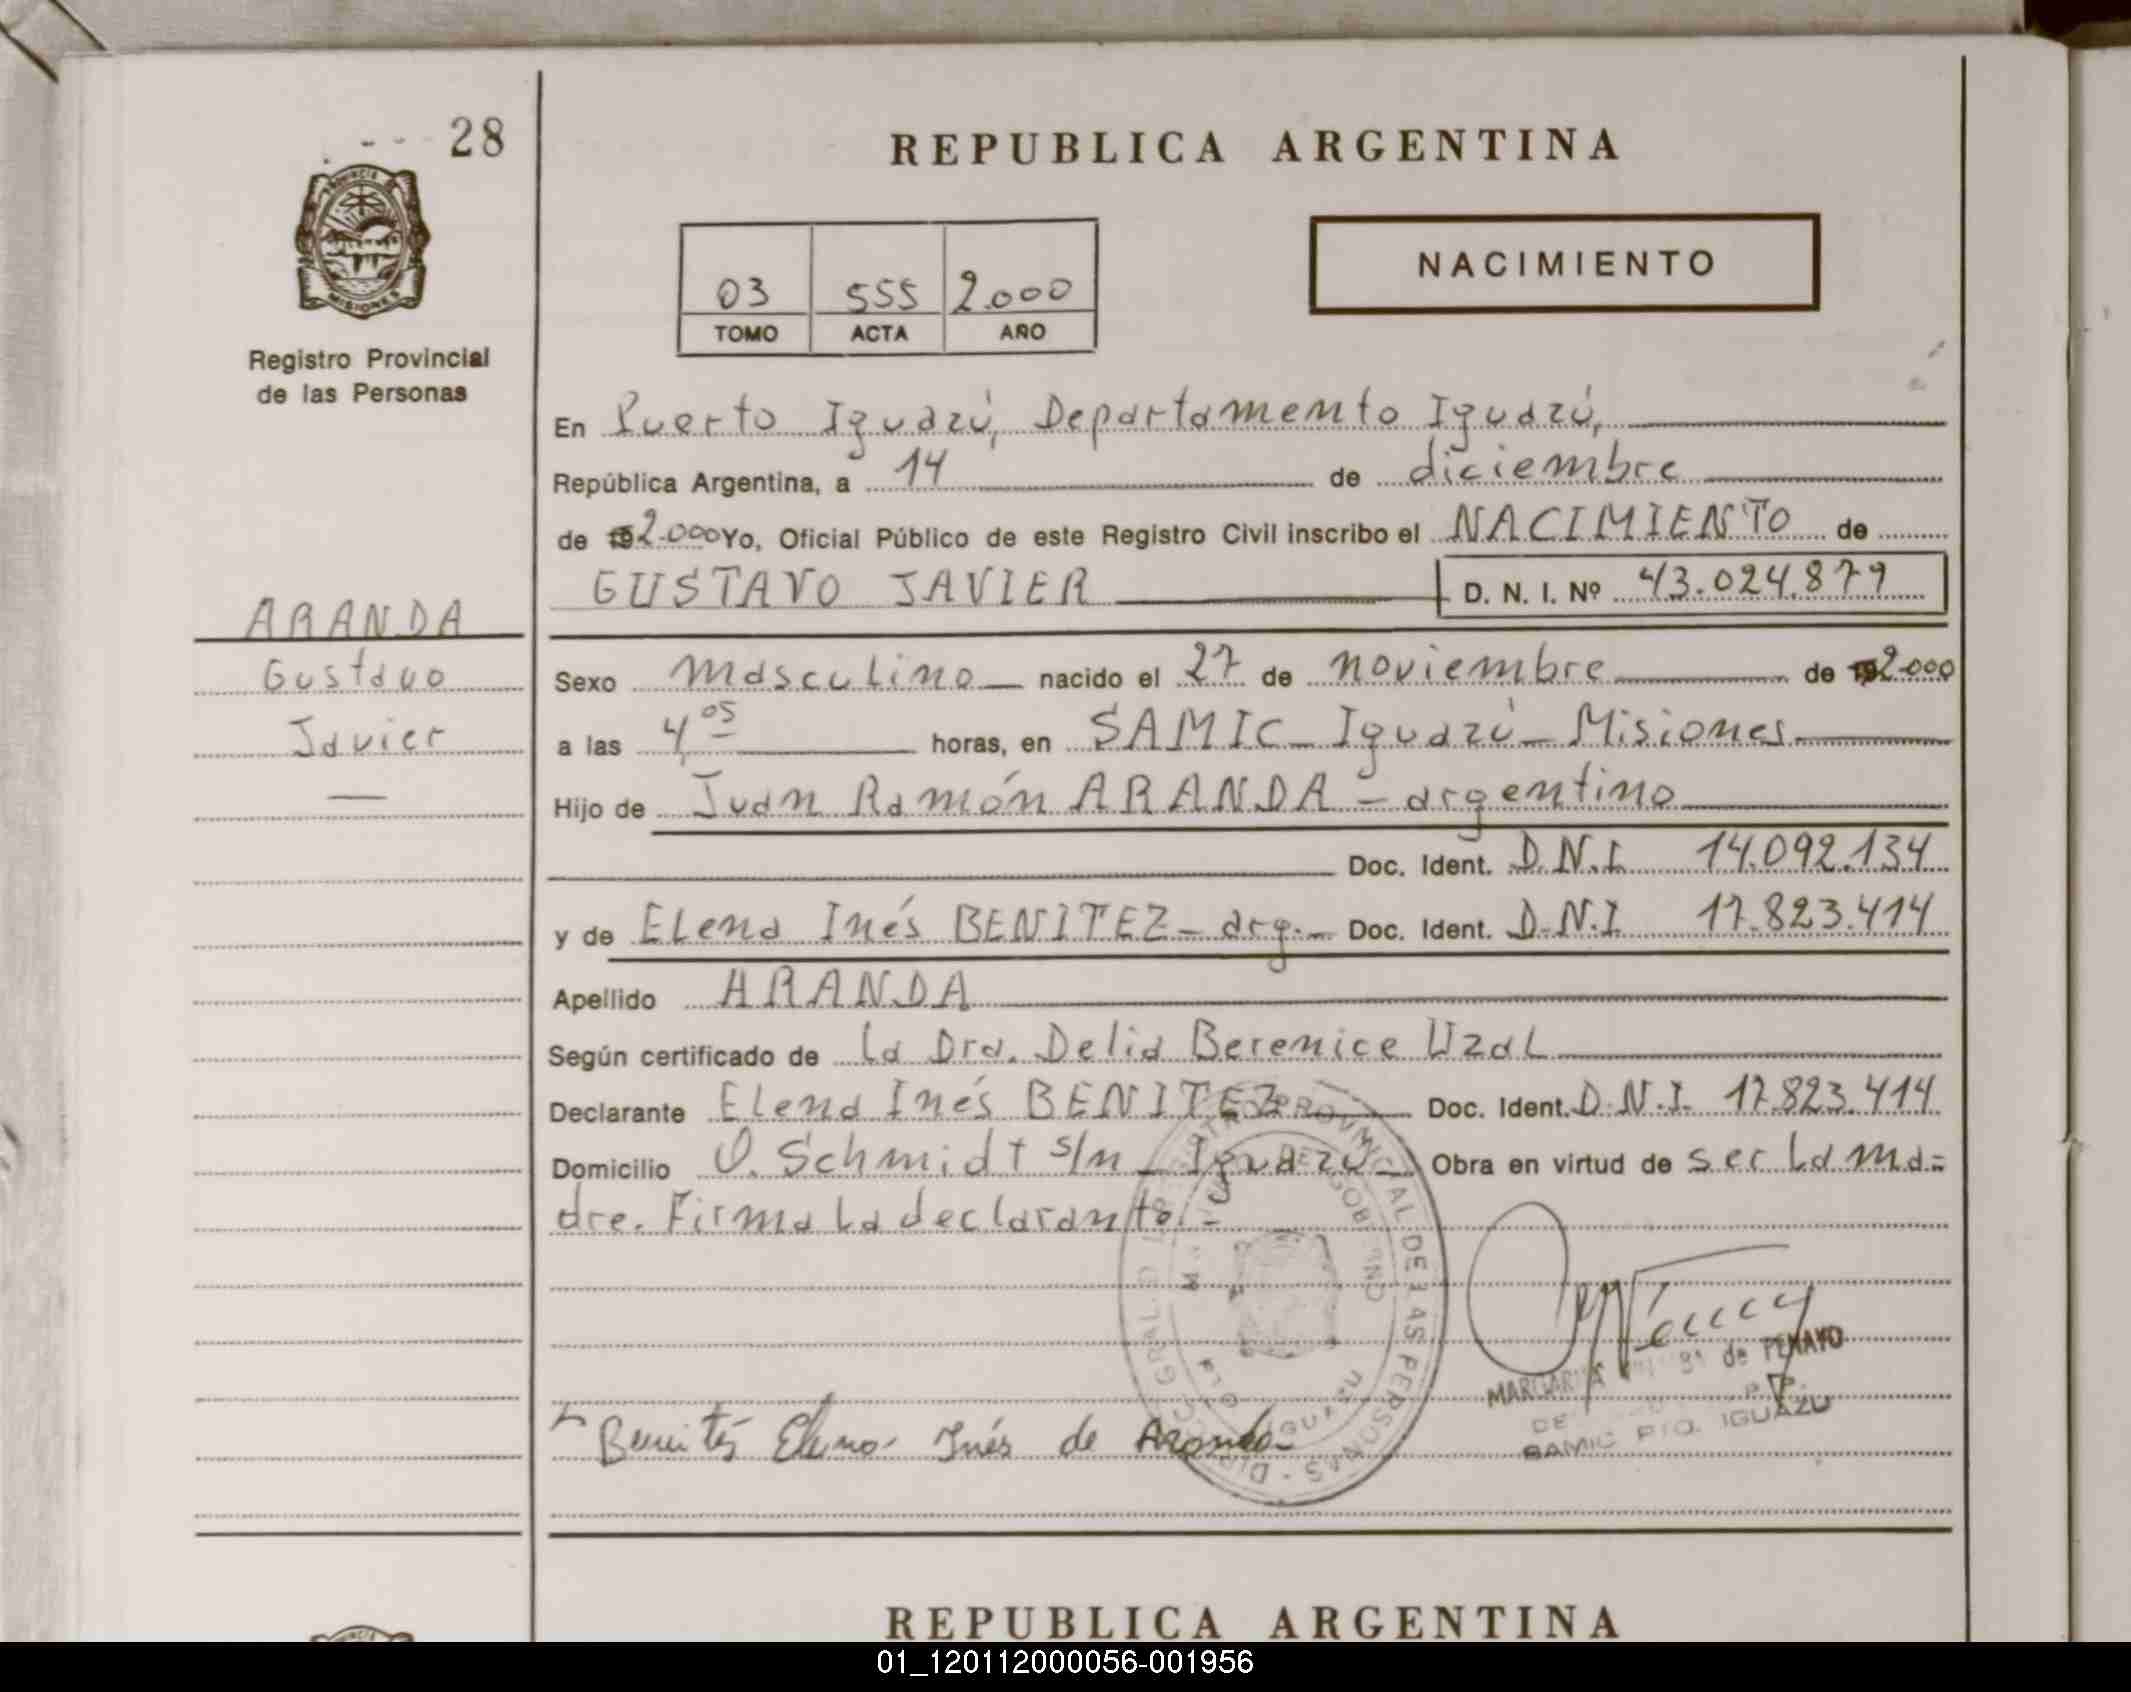 28
REPUBLICA ARGENTINA
PROVINCIA DE
MISIONES
Registro Provincial
de las Personas
03 555 2.000
TOMO ACTA AÑO
NACIMIENTO
En Puerto Iguazú, Departamento Iguazú,
República Argentina, a 14 de diciembre
de 192.000 Yo, Oficial Público de este Registro Civil inscribo el NACIMIENTO de
GUSTAVO JAVIER D. N. I. Nº 43.024.879
ARANDA
Gustavo
Javier
Sexo masculino nacido el 27 de noviembre de 192.000
a las 4,05 horas, en SAMIC - Iguazú - Misiones
Hijo de Juan Ramón ARANDA - argentino
Doc. Ident. D.N.I 14.092.134
y de Elena Inés BENITEZ - arg. - Doc. Ident. D.N.I 17.823.414
Apellido ARANDA
Según certificado de La Dra. Delia Berenice Uzal
Declarante Elena Inés BENITEZ Doc. Ident. D.N.I. 17.823.414
Domicilio O. Schmidt s/n - Iguazú - Obra en virtud de ser la ma=
dre. Firma la declarante. -
PROVINCIAL DE LAS PERSONAS
MARGARITA de PENAYO
DE
SAMIC PTO. IGUAZU
Benitéz Elena Inés de Aranda
REPUBLICA ARGENTINA
01_120112000056-001956